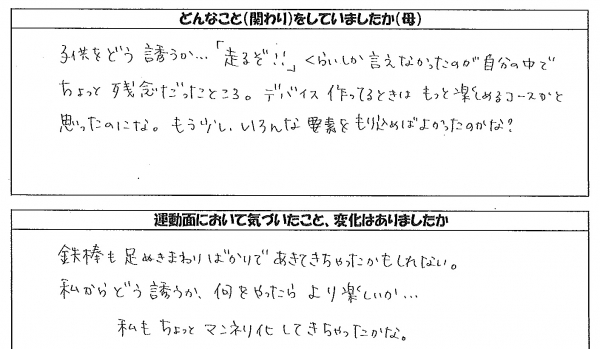 どんなこと(関わり)をしていましたか(母)
子供をどう誘うか…「走るぞ!!」くらいしか言えなかったのが自分の中で
ちょっと残念だったところ。デバイス作ってるときはもっと楽しめるコースかと
思ったのにな。もう少し、いろんな要素をもり込めばよかったのかな?
運動面において気づいたこと、変化はありましたか
鉄棒も足ぬきまわりばかりであきてきちゃったかもしれない。
私からどう誘うか、何をやったらより楽しいか…
私もちょっとマンネリ化してきちゃったかな。